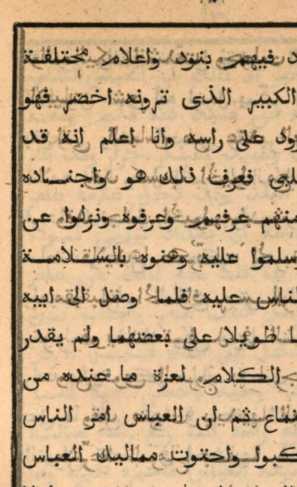 فيهم بنود واعلام مختلفة
الكبير الذى ترونه اخضر فهو
على راسه وانا اعلم انه قد
فعرف ذلك هو واجناده
منهم عرفهم وعرفوه ونزلوا عن
عليه وهنوه بالسلامة
عليه فلما وصل الى ابيه
طويلا على بعضهما ولم يقدر
الكلام لعزة ما عنده من
ثم ان العباس امر الناس
واحتوت مماليك العباس